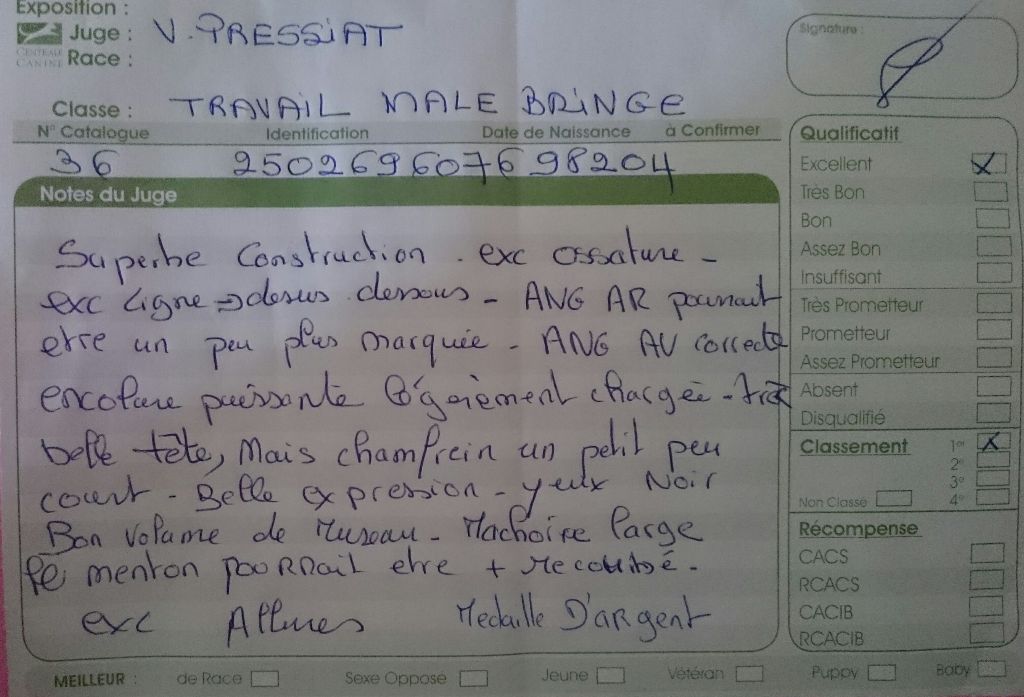 Exposition :
Juge : V. PRESSIAT
CENTRALE CANINE
Race :
Signature :
Classe : TRAVAIL MALE BRINGE
N° Catalogue Identification Date de Naissance à Confirmer
36 250269607698204
Notes du Juge
Superbe Construction . exc ossature -
exc Ligne => desus dessous - ANG AR pourrait
etre un peu plus marquée - ANG AV correcte
encolure puissante légèrement chargée - très
belle tête, Mais chamfrein un petit peu
court - Belle expression - yeux Noir
Bon Volume de Museau - Machoire large
le menton pourrait etre + recourbé -
exc Allures Medaille D'argent
Qualificatif
Excellent X
Très Bon
Bon
Assez Bon
Insuffisant
Très Prometteur
Prometteur
Assez Prometteur
Absent
Disqualifié
Classement 1er X
2e
3e
Non Classé 4e
Récompense
CACS
RCACS
CACIB
RCACIB
MEILLEUR : de Race Sexe Opposé Jeune Vétéran Puppy Baby